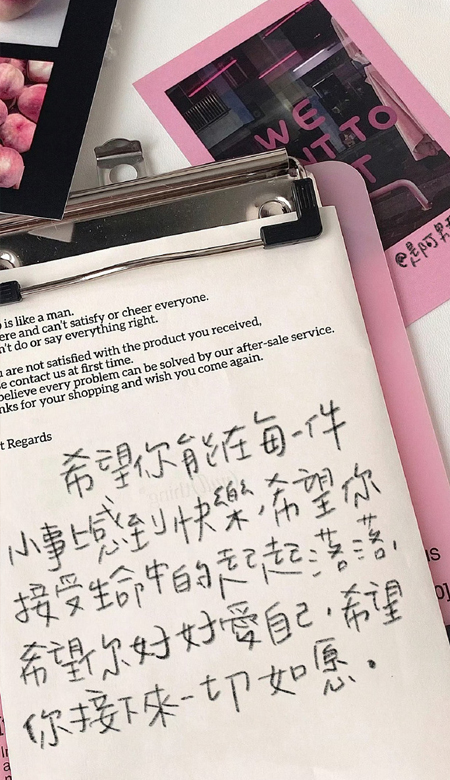 WE
TO
@是阿
is like a man.
ere and can't satisfy or cheer everyone.
n't do or say everything right.
are not satisfied with the product you received,
e contact us at first time.
believe every problem can be solved by our after-sale service.
nks for your shopping and wish you come again.
t Regards
希望你能在每一件
小事上感到快樂,希望你
接受生命中的起起落落,
希望你好好愛自己,希望
你接下來一切如愿.
us